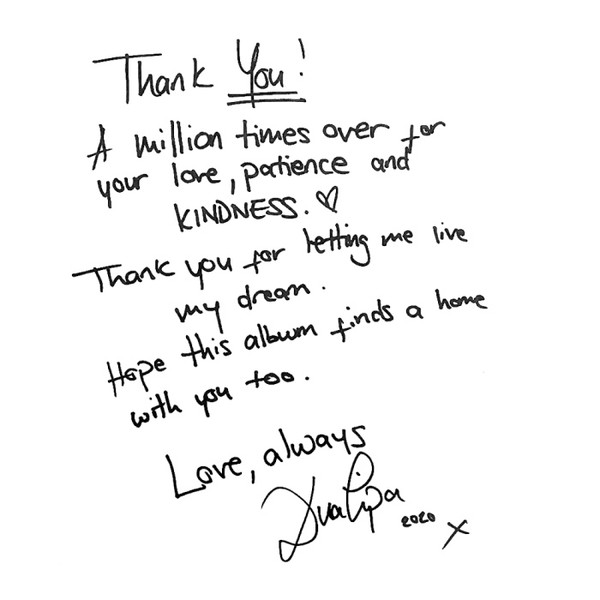 Thank You!
A million times over for
your love, patience and
KINDNESS. ♡
Thank you for letting me live
my dream.
Hope this album finds a home
with you too.
Love, always
Dua Lipa
2020 x